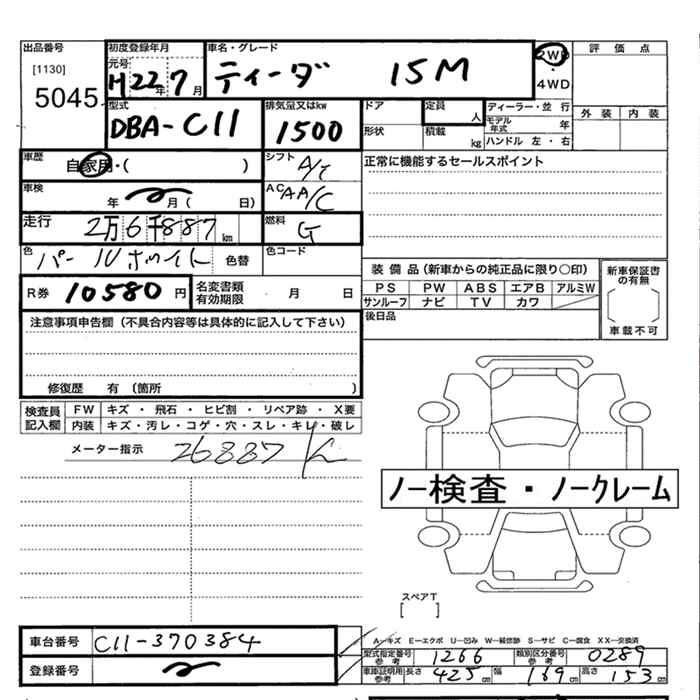 出品番号 初度登録年月 車名・グレード 2WD 評価点
[1130] 元号 H22年7月 ティーダ 15M ・4WD
5045 型式 排気量又はkw ドア 定員 人 ディーラー・並行 外装 内装
DBA-C11 1500 形状 積載 kg モデル年式 年
ハンドル 左・右
車歴 自家用・( ) シフト A/T 正常に機能するセールスポイント
車検 年 月( 日) AC AA/C
走行 2万6千887km 燃料 G
色 パールホワイト 色替 色コード
装備品(新車からの純正品に限り○印) 新車保証書の有無
R券 10580円 名変書類有効期限 月 日 PS PW ABS エアB アルミW
サンルーフ ナビ TV カワ 車載不可
注意事項申告欄(不具合内容等は具体的に記入して下さい) 後日品
修復歴 有(箇所 )
検査員記入欄 FW キズ・飛石・ヒビ割・リペア跡・X要
内装 キズ・汚レ・コゲ・穴・スレ・キレ・破レ
メーター指示 26887K
ノー検査・ノークレーム
スペアT
[ ]
車台番号 C11-370384 A―キズ E―エクボ U―凹み W―補修跡 S―サビ C―腐食 XX―交換済
型式指定番号 参考 1266 類別区分番号 参考 0289
登録番号 車庫証明用参考 長さ 425cm 幅 169cm 高さ 153cm